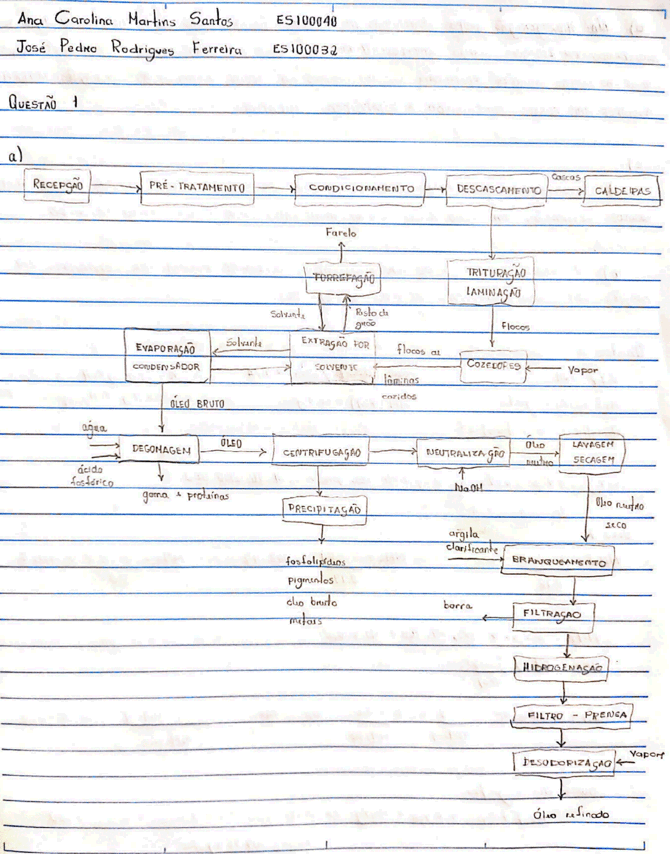 Ana Carolina Martins Santos ES100040
José Pedro Rodrigues Ferreira ES100032
QUESTÃO 1
a)
RECEPÇÃO PRÉ-TRATAMENTO CONDICIONAMENTO DESCASCAMENTO cascas CALDEIRAS
Farelo
TORREFAÇÃO
TRITURAÇÃO
LAMINAÇÃO
Solvente Resto de
grão
Flocos
EVAPORAÇÃO
CONDENSADOR
Solvente
EXTRAÇÃO POR
SOLVENTE
flocos ou
lâminas
cozidos
COZEDORES
Vapor
ÓLEO BRUTO
água
ácido
fosfórico
DEGOMAGEM
ÓLEO
CENTRIFUGAÇÃO
NEUTRALIZAÇÃO
Óleo
neutro
LAVAGEM
SECAGEM
goma e proteínas
NaOH
PRECIPITAÇÃO
Óleo neutro
seco
fosfolipídios
pigmentos
óleo bruto
metais
argila
clarificante
BRANQUEAMENTO
borra
FILTRAÇÃO
HIDROGENAÇÃO
FILTRO - PRENSA
DESODORIZAÇÃO
Vapor
Óleo refinado